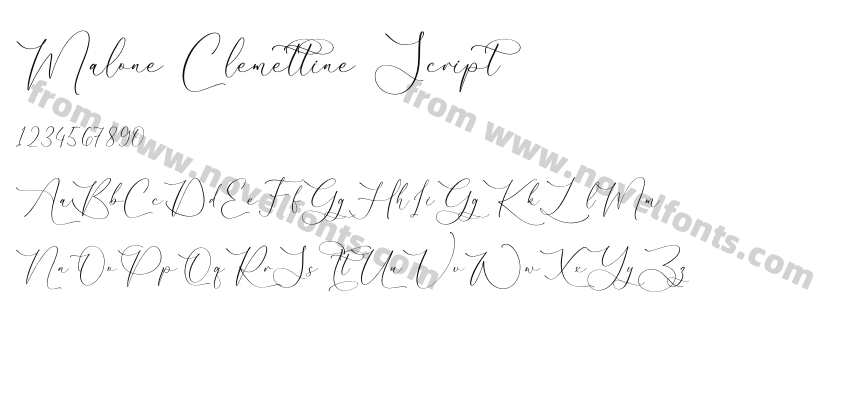 Malone Clemettine Script
1234567890
AaBbCcDdEeFfGgHhIiGgKkLlMm
NnOoPpQqRrSsTtUuVvWwXxYyZz
from www.novelfonts.com
from www.novelfonts.com